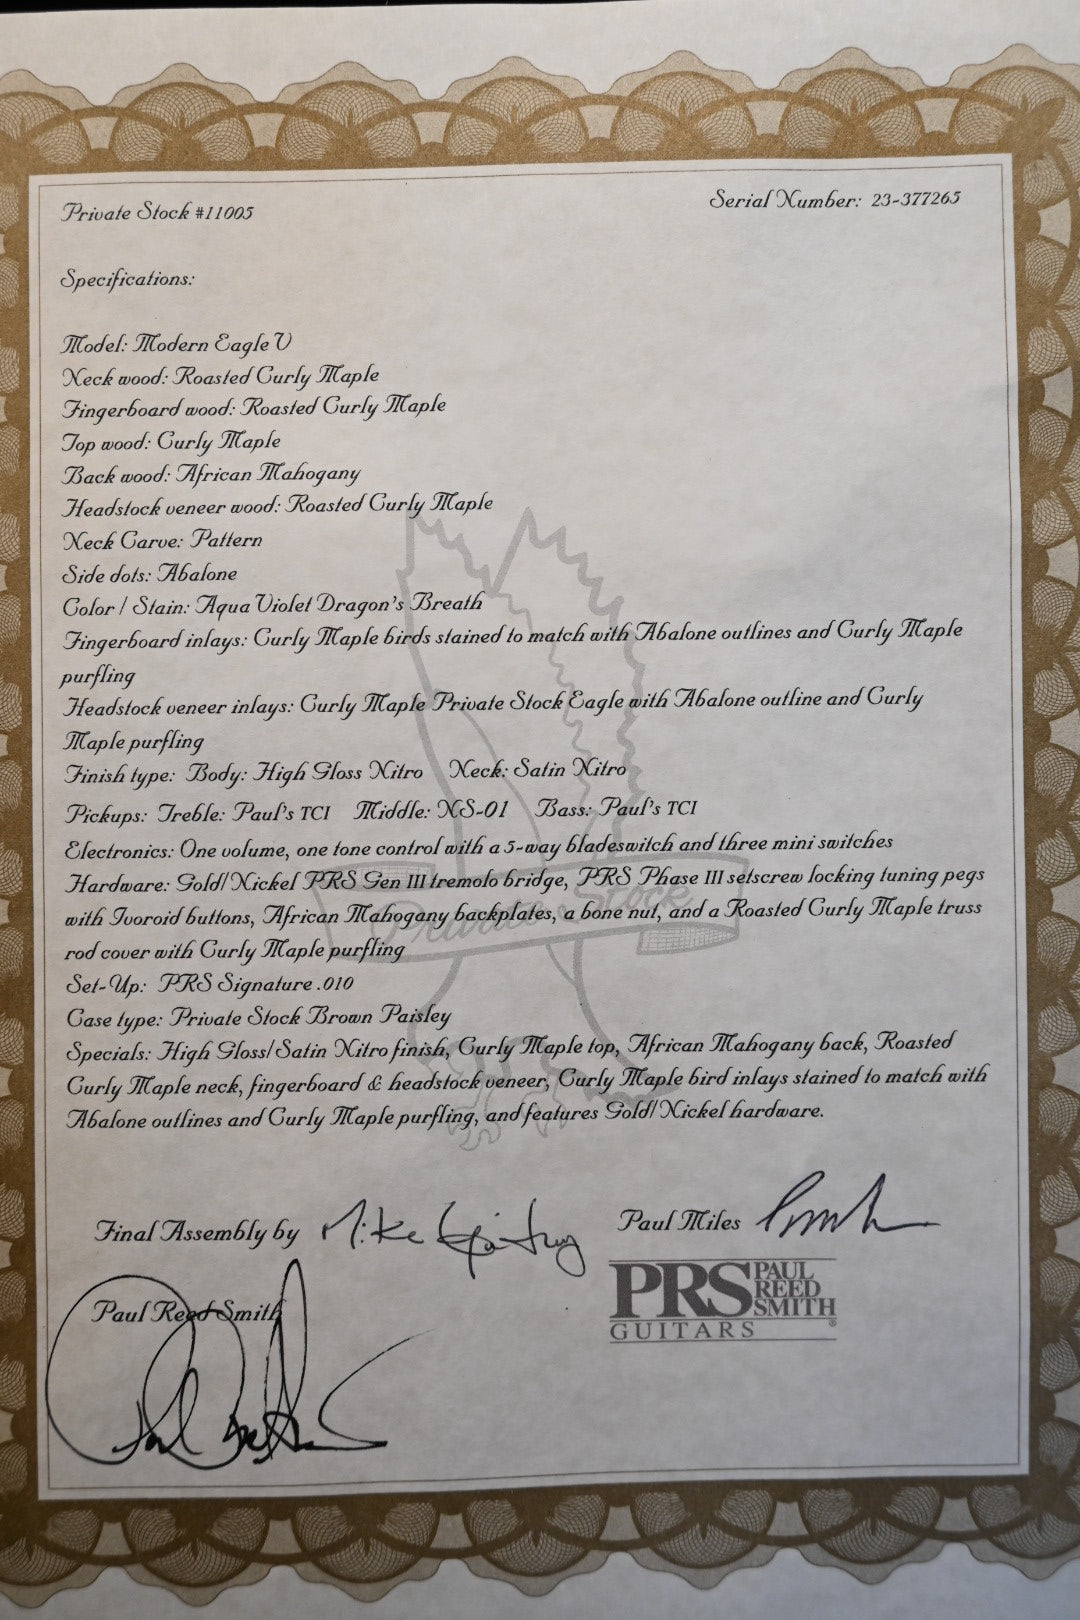 Private Stock #11005
Serial Number: 23-377265
Specifications:
Model: Modern Eagle V
Neck wood: Roasted Curly Maple
Fingerboard wood: Roasted Curly Maple
Top wood: Curly Maple
Back wood: African Mahogany
Headstock veneer wood: Roasted Curly Maple
Neck Carve: Pattern
Side dots: Abalone
Color / Stain: Aqua Violet Dragon's Breath
Fingerboard inlays: Curly Maple birds stained to match with Abalone outlines and Curly Maple
purfling
Headstock veneer inlays: Curly Maple Private Stock Eagle with Abalone outline and Curly
Maple purfling
Finish type: Body: High Gloss Nitro Neck: Satin Nitro
Pickups: Treble: Paul's TCI Middle: NS-01 Bass: Paul's TCI
Electronics: One volume, one tone control with a 5-way bladeswitch and three mini switches
Hardware: Gold/Nickel PRS Gen III tremolo bridge, PRS Phase III setscrew locking tuning pegs
with Ivoroid buttons, African Mahogany backplates, a bone nut, and a Roasted Curly Maple truss
Private Stock
rod cover with Curly Maple purfling
Set-Up: PRS Signature .010
Case type: Private Stock Brown Paisley
Specials: High Gloss/Satin Nitro finish, Curly Maple top, African Mahogany back, Roasted
Curly Maple neck, fingerboard & headstock veneer, Curly Maple bird inlays stained to match with
Abalone outlines and Curly Maple purfling, and features Gold/Nickel hardware.
Final Assembly by Mike
Paul Miles
Paul Reed Smith
PRS PAUL
REED
SMITH
GUITARS